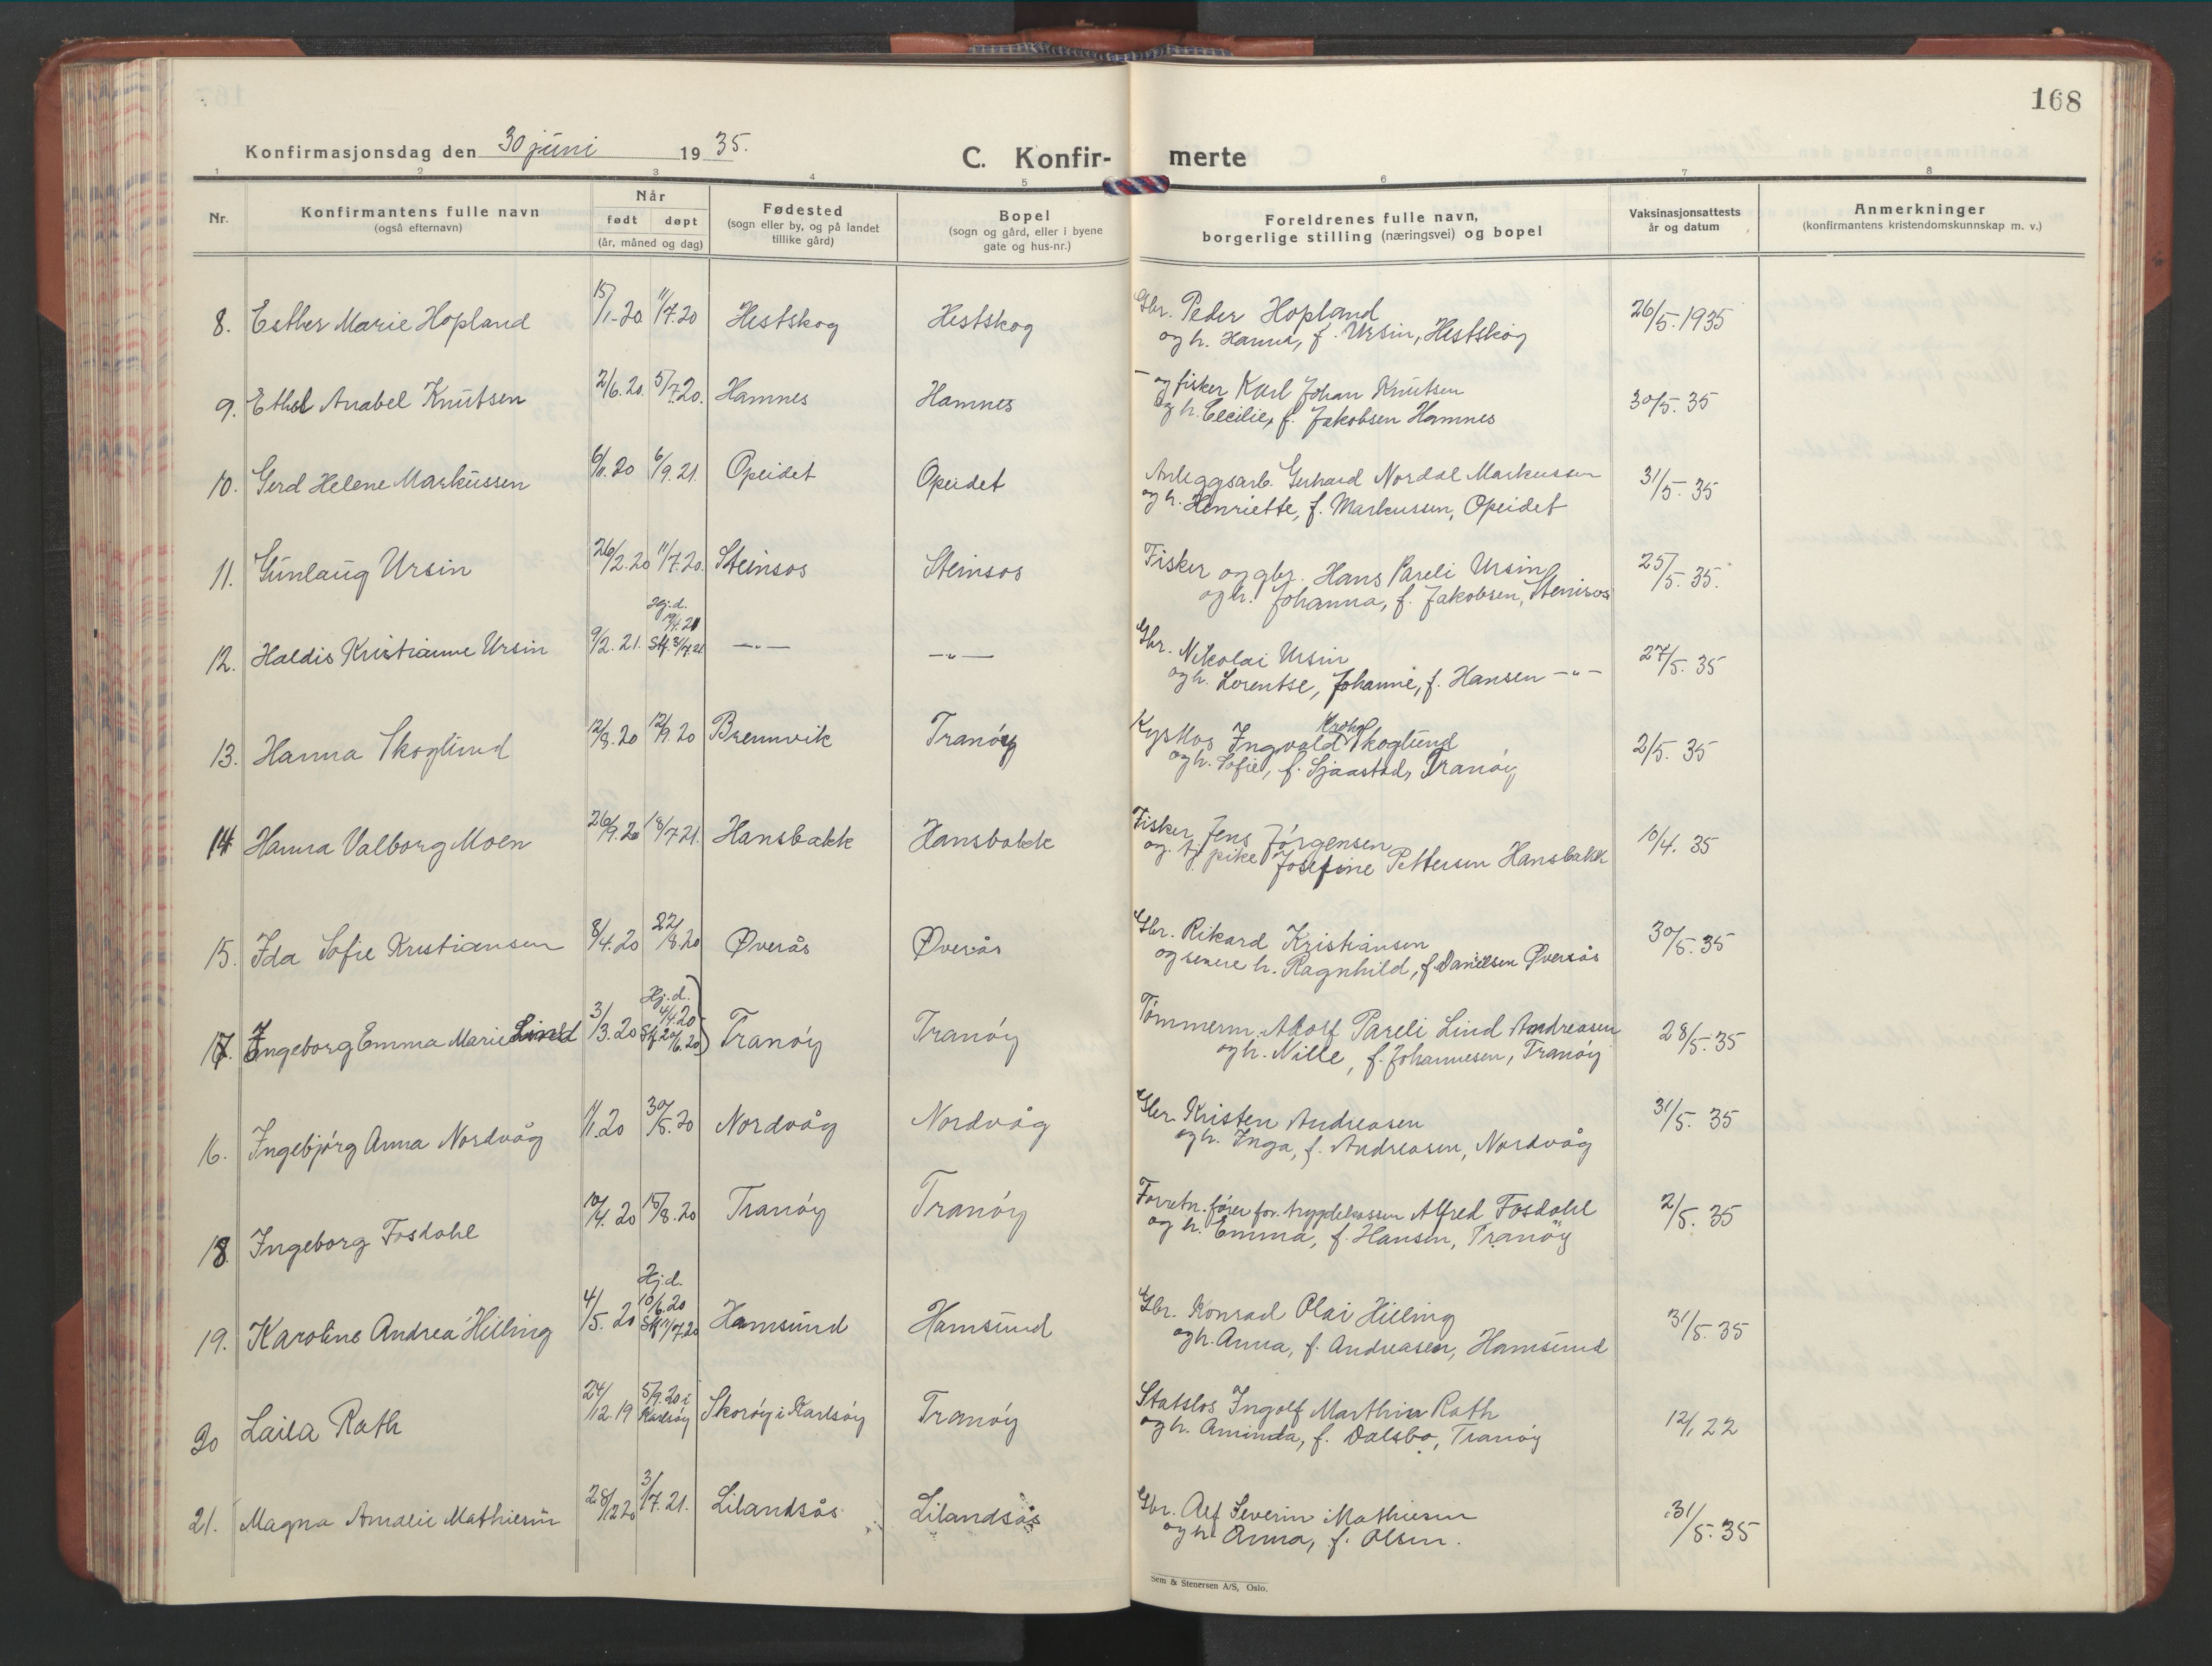 168
Konfirmasjonsdag den 30 juni 1935.
C. Konfirmerte
1 2 3 4 5 6 7 8
Nr.
Konfirmantens fulle navn
(også efternavn)
Når
født døpt
(år, måned og dag)
Fødested
(sogn eller by, og på landet
tillike gård)
Bopel
(sogn og gård, eller i byene
gate og hus-nr.)
Foreldrenes fulle navn,
borgerlige stilling (næringsvei) og bopel
Vaksinasjonsattests
år og datum
Anmerkninger
(konfirmantens kristendomskunnskap m. v.)
8. Esther Marie Hopland 15/1.20 11/7.20 Hestskog Hestskog Gbr. Peder Hopland 26/5.1935
og h. Hanna, f. Ursin, Hestskog
9. Ethel Anabel Knutsen 2/6.20. 5/7.20. Hamnes Hamnes — og fisker Karl Johan Knutsen 30/5.35
og h. Cecilie, f. Jakobsen Hamnes
10. Gerd Helene Markussen 6/11.20 6/9.21. Opeidet Opeidet Anleggsarb. Gerhard Nordal Markussen 31/5.35
og h. Henriette, f. Markussen, Opeidet
11. Gunlaug Ursin 26/2.20 11/7.20. Steinsos Steinsos Fisker og gbr. Hans Pareli Ursin 25/5.35.
og h. Johanna, f. Jakobsen, Steinsos
12. Haldis Kristianne Ursin 9/2.21. Hj.d. /4.21 Stf. 3/7.21 —"— —"— Gbr. Nikolai Ursin 27/5.35
og h. Lorentse, Johanne, f. Hansen —"—
13. Hanna Skoglund 12/8.20 12/9.20 Brennvik Tranöy Kystlos Ingvald Krohg Skoglund 2/5.35
og h. Sofie, f. Sjaastad, Tranöy
14 Hanna Valborg Moen 26/9.20 18/7.21. Hansbakk Hansbakk Fisker Jens Jörgensen 10/4.35
og tj. pike Josefine Pettersen Hansbakk
15. Ida Sofie Kristiansen 8/4.20 22/8.20 Øverås Øverås Gbr. Rikard Kristiansen 30/5.35
og senere h. Ragnhild, f. Danielsen Øverås
17. Ingeborg Emma Marie Lind 3/3.20 Hj.d. 4/4.20 Stf. 20/6.20 Tranöy Tranöy Tömmerm. Adolf Pareli Lind Andreasen 28/5.35
og h. Nille, f. Johannesen, Tranöy
16. Ingebjörg Anna Nordvåg 1/1.20 30/5.20 Nordvåg Nordvåg Gbr. Kristen Andreasen 31/5.35
og h. Inga, f. Andreasen, Nordvåg
18 Ingeborg Fosdahl 10/4.20 15/8.20 Tranöy Tranöy Forretn. fører for trygdekassen Alfred Fosdahl 2/5.35
og h. Emma, f. Hansen, Tranöy
19. Karoline Andrea Hilling 4/5.20 Hj.d. 10/6.20 Stf. 11/7.20 Hamsund Hamsund Gbr. Konrad Olai Hilling 31/5.35
og h. Anna, f. Andreasen, Hamsund
20 Laila Rath 24/12.19 5/9.20 i Karlsöy Skoröy i Karlsöy Tranöy Statslos Ingolf Marthin Rath 12/1 22
og h. Aminda, f. Dalsbo, Tranöy
21. Magna Amalie Mathiesen 28/12 20 3/7.21. Lilandsås Lilandsås Gbr. Alf Severin Mathiesen 31/5.35
og h. Anna, f. Olsen.
Sem & Stenersen A/S, Oslo.